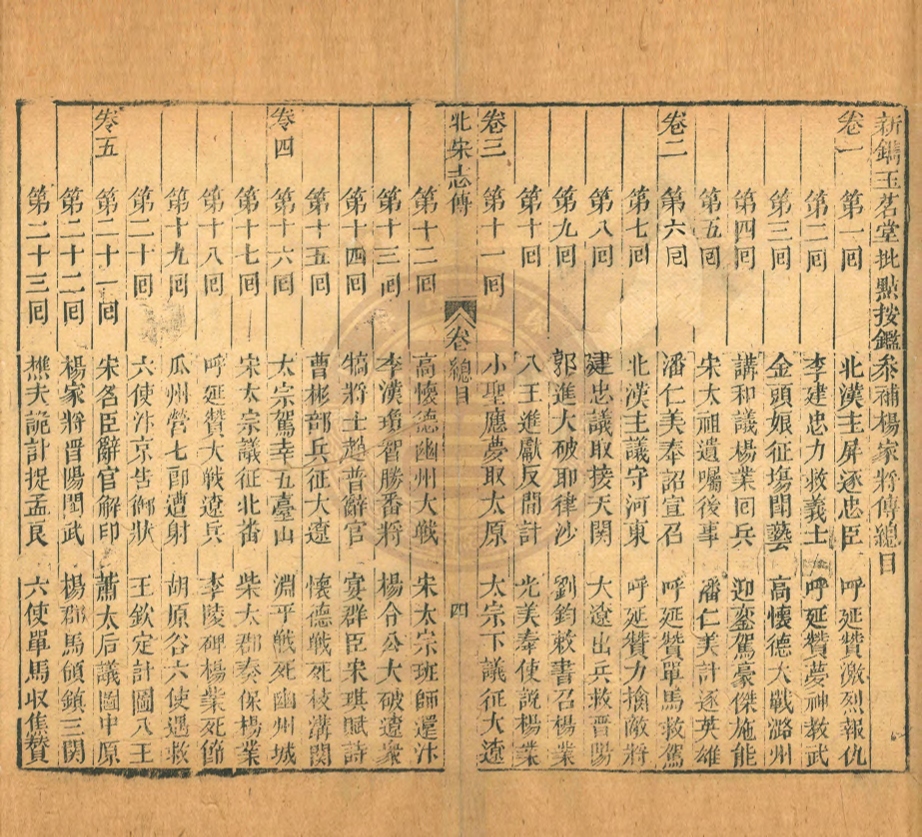 新鐫玉茗堂批點按鑑參補楊家將傳總目
卷一 第一回 北漢主屏逐忠臣 呼延贊激烈報仇
第二回 李建忠力救義士 呼延贊夢神教武
第三回 金頭娘征場鬬藝 高懷德大戰潞州
第四回 講和議楊業回兵 迎鑾駕豪傑施能
第五回 宋太祖遺囑後事 潘仁美計逐英雄
卷二 第六回 潘仁美奉詔宣召 呼延贊單馬救駕
第七回 北漢主議守河東 呼延贊力擒敵將
第八回 建忠議取接天關 大遼出兵救晉陽
第九回 郭進大破耶律沙 劉鈞敕書召楊業
第十回 八王進獻反間計 光美奉使說楊業
卷三 第十一回 小聖應夢取太原 太宗下議征大遼
北宋志傳 卷總目 四
第十二回 高懷德幽州大戰 宋太宗班師還汴
第十三回 李漢瓊智勝番將 楊令公大破遼衆
第十四回 犒將士趙普辭官 宴群臣宋琪賦詩
第十五回 曹彬部兵征大遼 懷德戰死岐溝關
卷四 第十六回 太宗駕幸五臺山 淵平戰死幽州城
第十七回 宋太宗議征北番 柴太郡奏保楊業
第十八回 呼延贊大戰遼兵 李陵碑楊業死節
第十九回 瓜州營七郎遭射 胡原谷六使遇救
第二十回 六使汴京告御狀 王欽定計圖八王
卷五 第二十一回 宋名臣辭官解印 蕭太后議圖中原
第二十二回 楊家將晉陽鬬武 楊郡馬領鎮三關
第二十三回 樵夫詭計捉孟良 六使單馬收焦贊